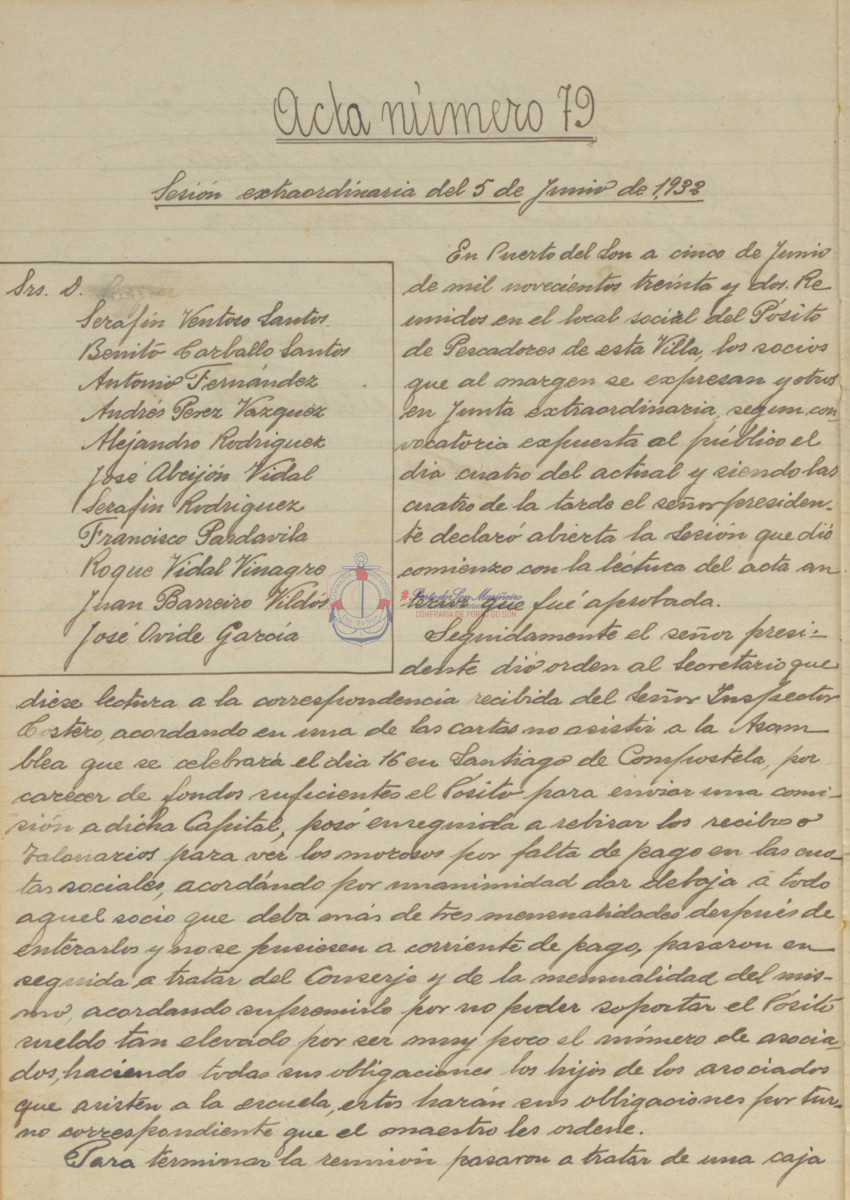 Acta número 79
Sesión extraordinaria del 5 de Junio de 1,932
Srs. D.
Serafín Ventoso Santos
Benito Carballo Santos
Antonio Fernández
Andrés Perez Vazquez
Alejandro Rodriguez
José Abeijón Vidal
Serafin Rodriguez
Francisco Pardavila
Roque Vidal Vinagre
Juan Barreiro Vildós
José Ovide García
En Puerto del Son a cinco de Junio
de mil novecientos treinta y dos. Re
unidos en el local social del Pósito
de Pescadores de esta Villa, los socios
que al margen se expresan y otros
en Junta extraordinaria, segun con-
vocatoria expuesta al público el
dia cuatro del actual y siendo las
cuatro de la tarde el señor presiden-
te declaró abierta la Sesión que dió
comienzo con la léctura del acta an
terior que fué aprobada.
Seguidamente el señor presi-
dente dió orden al Secretario que
diese lectura a la correspondencia recibida del Señor Inspector
Costero, acordando en una de las cartas no asistir a la Asam
blea que se celebrará el dia 16 en Santiago de Compostela, por
carecer de fondos suficientes el Pósito para enviar una comi-
sión a dicha Capital, pasó enseguida a rebisar los recibos o
talonarios para ver los morosos por falta de pago en las cuo-
tas sociales, acordándo por unanimidad dar debaja á todo
aquel socio que deba más de tres mensualidades después de
enterarlos y no se pusiesen a corriente de pago, pasaron en
seguida a tratar del Conserje y de la mensualidad del mis-
mo, acordando suprimirlo por no poder soportar el Pósito
sueldo tan elevado por ser muy poco el número de asocia-
dos, haciendo todas sus obligaciones los hijos de los asociados
que asisten a la escuela, estos harán sus obligaciones por tur-
no correspondiente que el maestro les ordene.
Para terminar la reunión pasaron a tratar de una caja
CONFRARIA DE PORTO DO SON